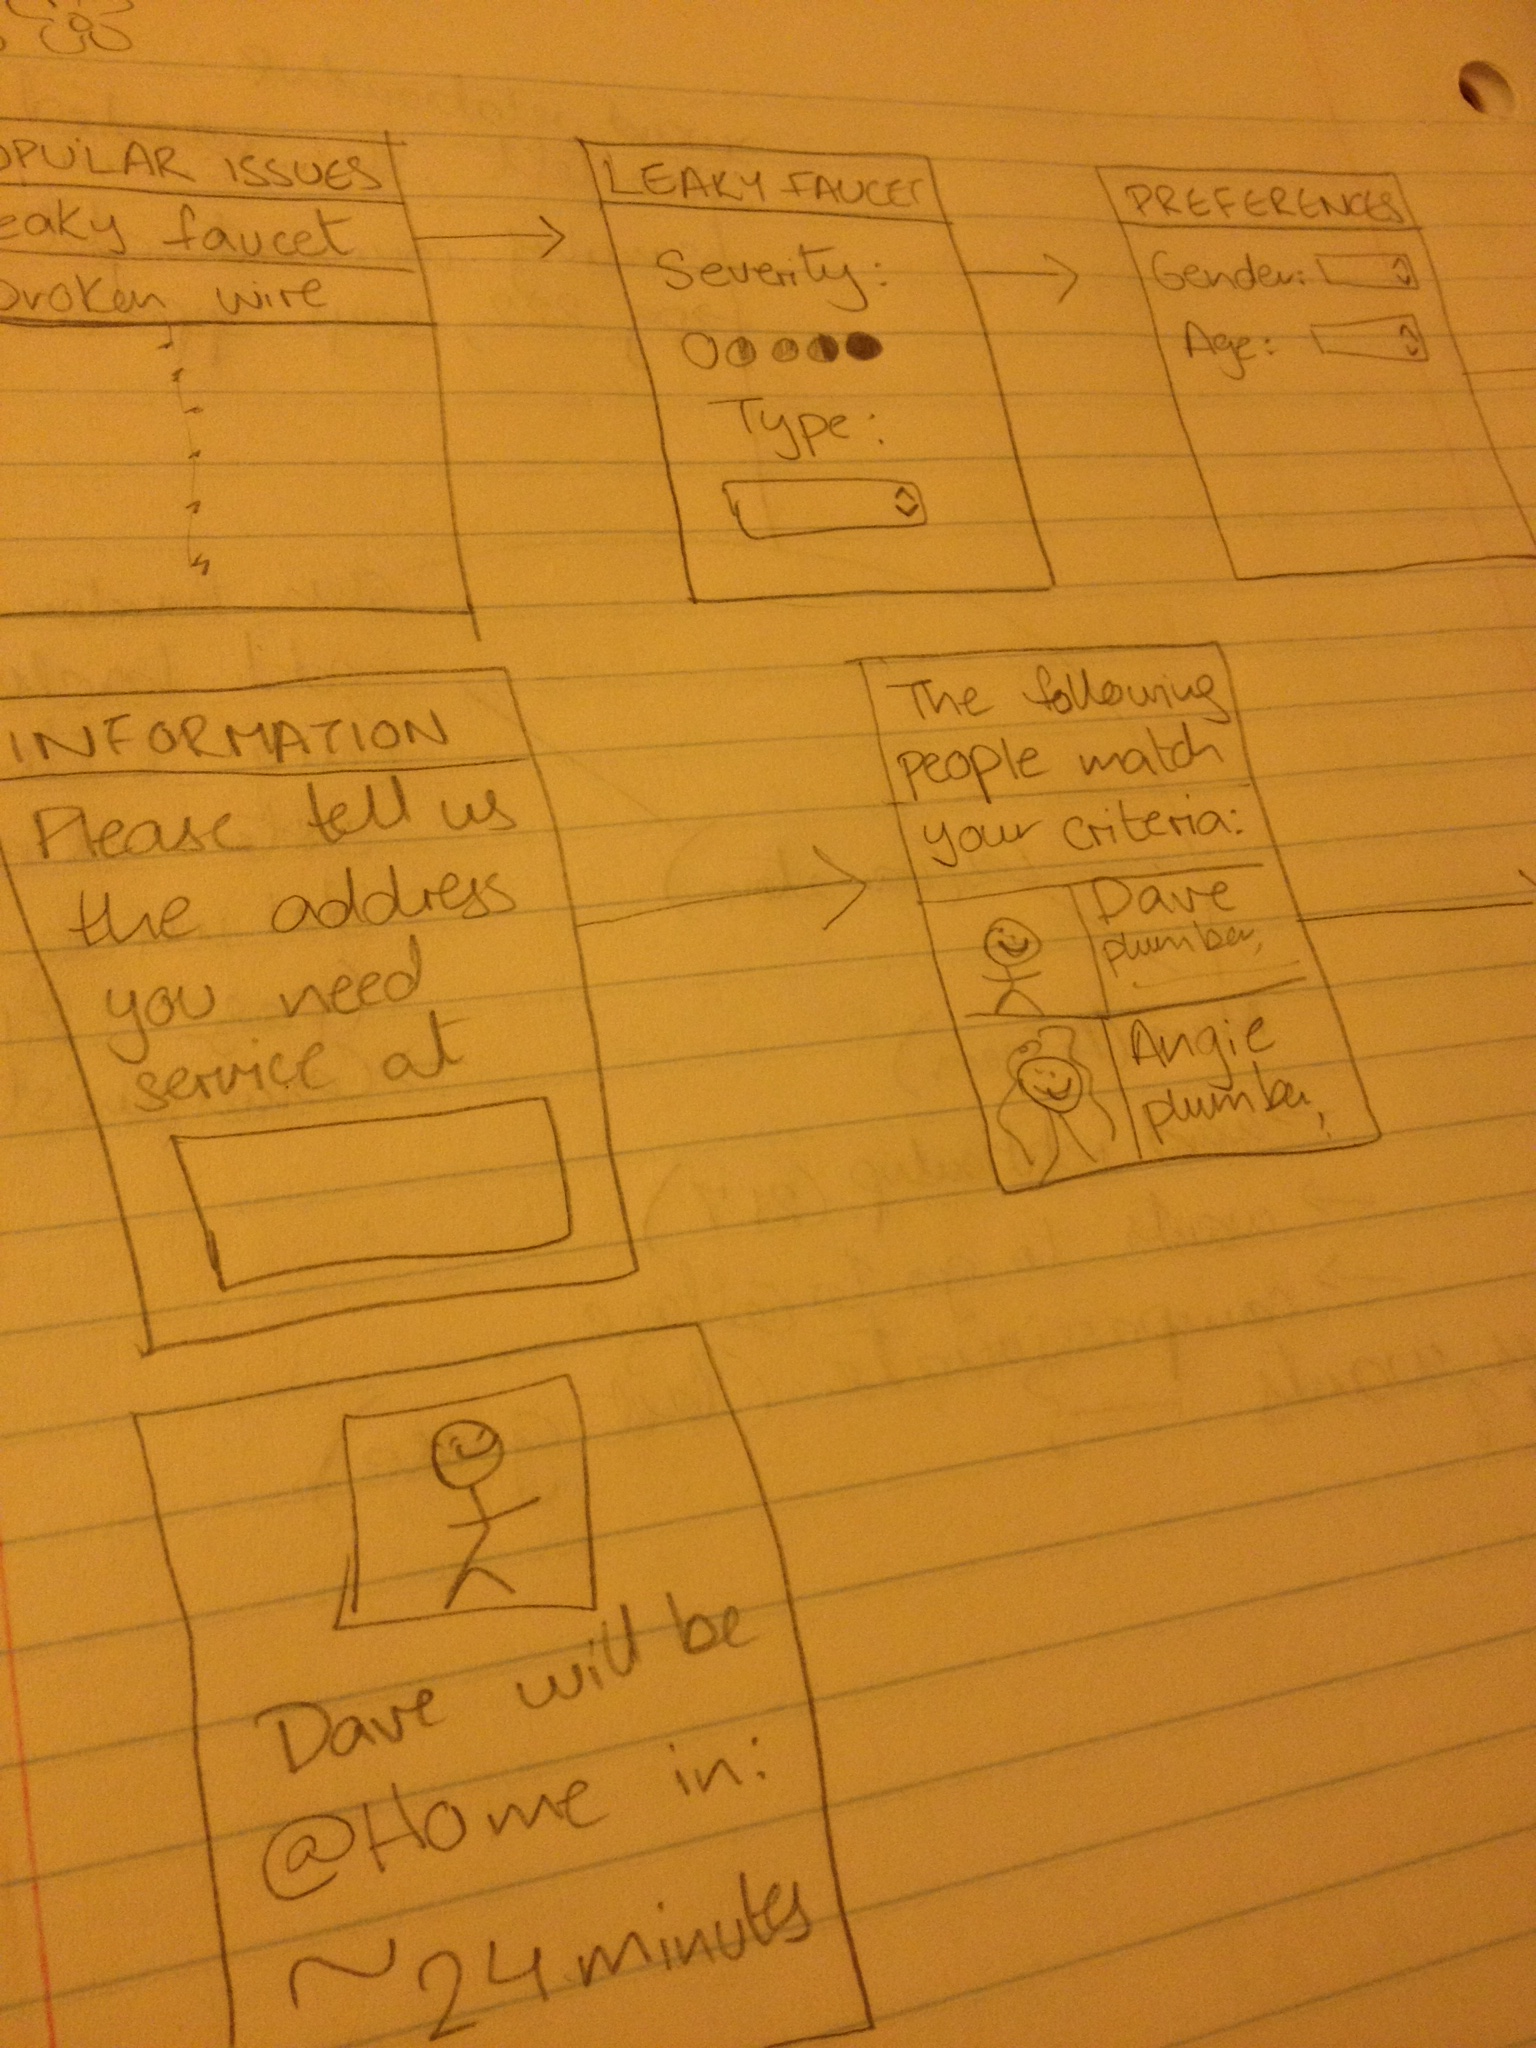 OPULAR ISSUES
eaky faucet
broken wire
LEAKY FAUCET
Severity:
Type:
PREFERENCES
Gender:
Age:
INFORMATION
Please tell us
the address
you need
service at
The following
people match
your criteria:
Dave
plumber,
Angie
plumber,
Dave will be
@Home in:
~24 minutes